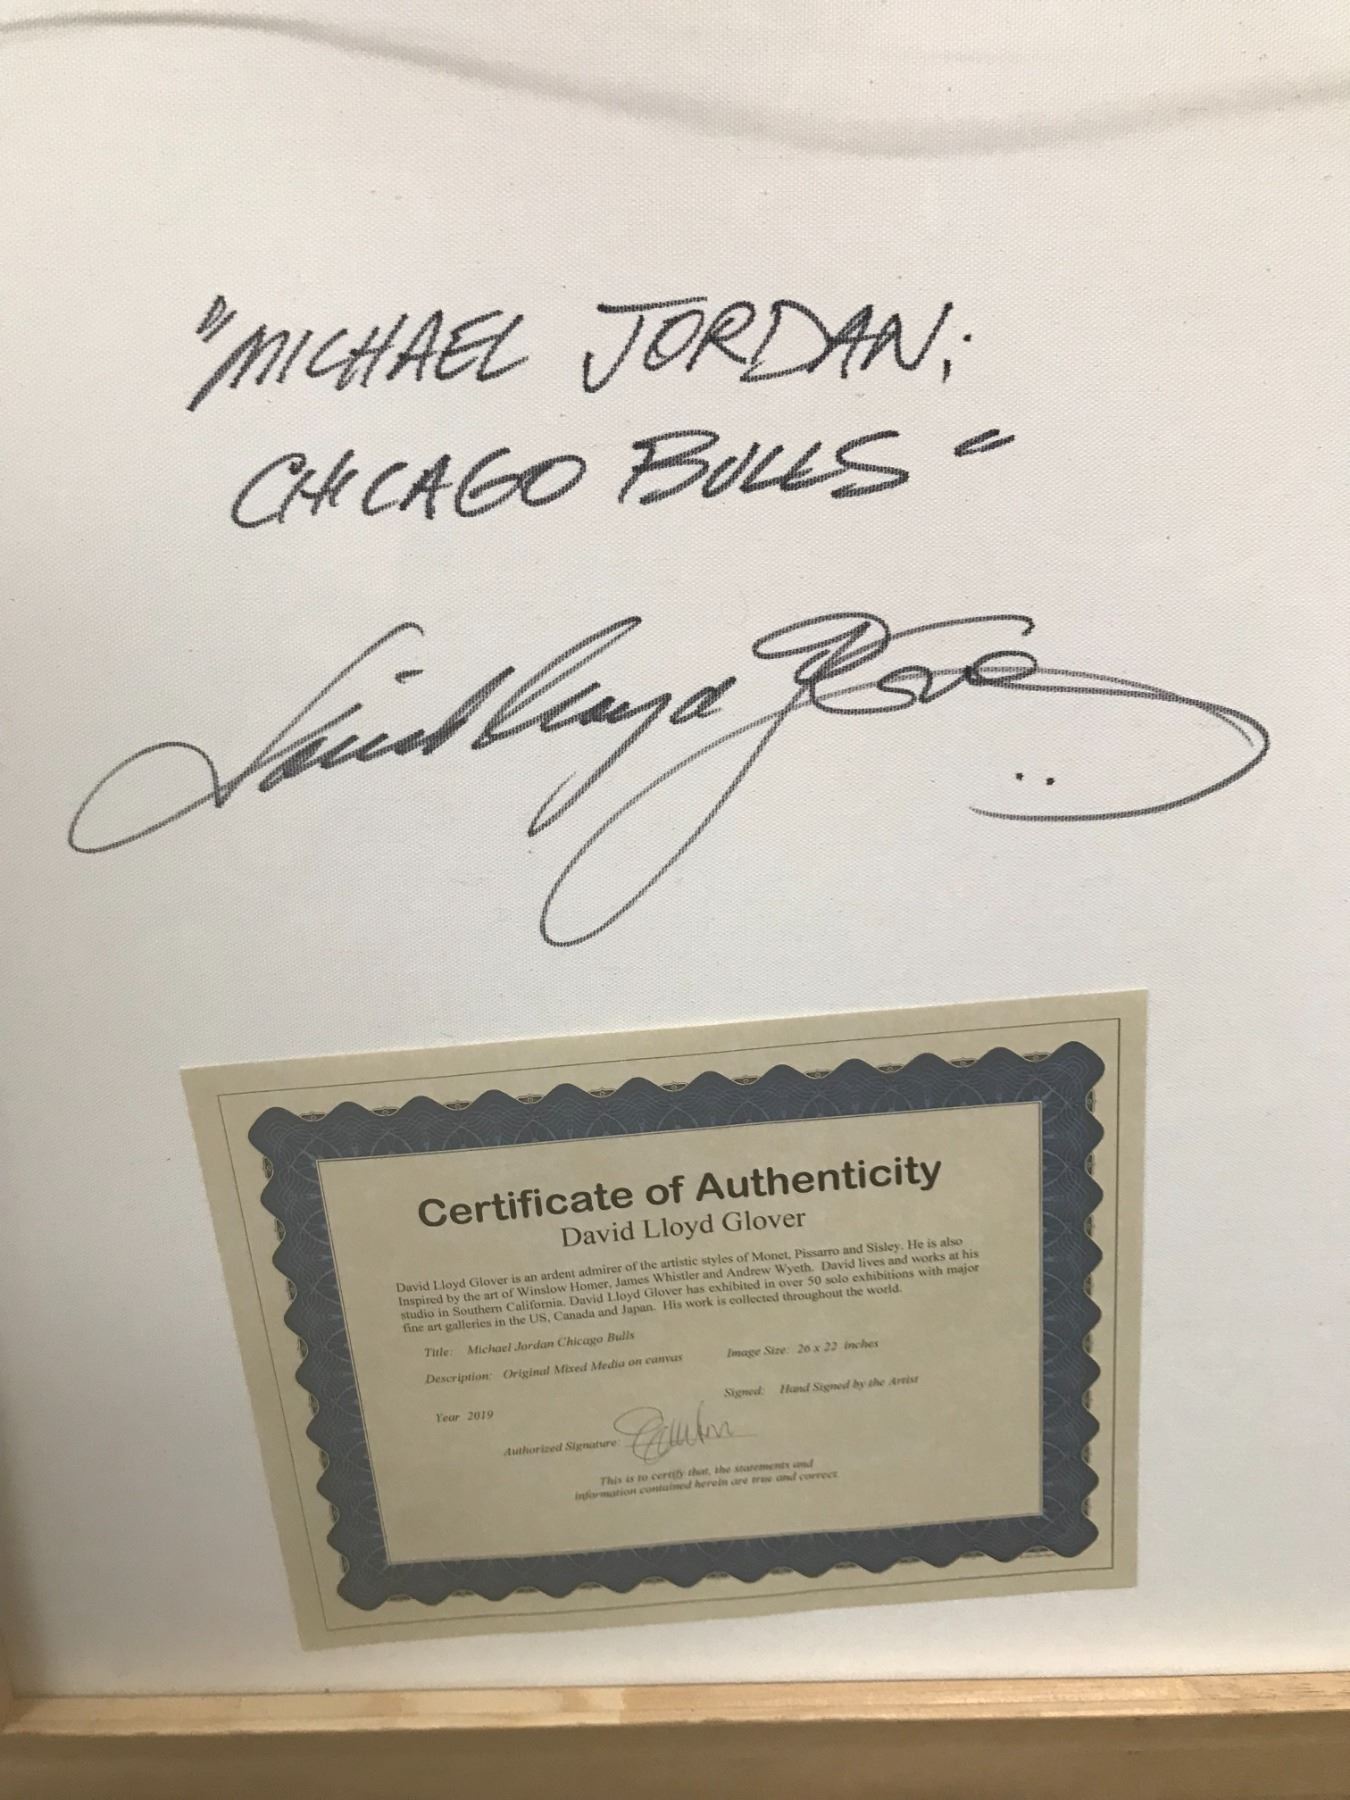 "MICHAEL JORDAN;
CHICAGO BULLS"
David Lloyd Glover
Certificate of Authenticity
David Lloyd Glover
David Lloyd Glover is an ardent admirer of the artistic styles of Monet, Pissarro and Sisley. He is also
Inspired by the art of Winslow Homer, James Whistler and Andrew Wyeth. David lives and works at his
studio in Southern California. David Lloyd Glover has exhibited in over 50 solo exhibitions with major
fine art galleries in the US, Canada and Japan. His work is collected throughout the world.
Title: Michael Jordan Chicago Bulls
Description: Original Mixed Media on canvas
Image Size: 26 x 22 inches
Signed: Hand Signed by the Artist
Year 2019
Authorized Signature:
This is to certify that, the statements and
information contained herein are true and correct.